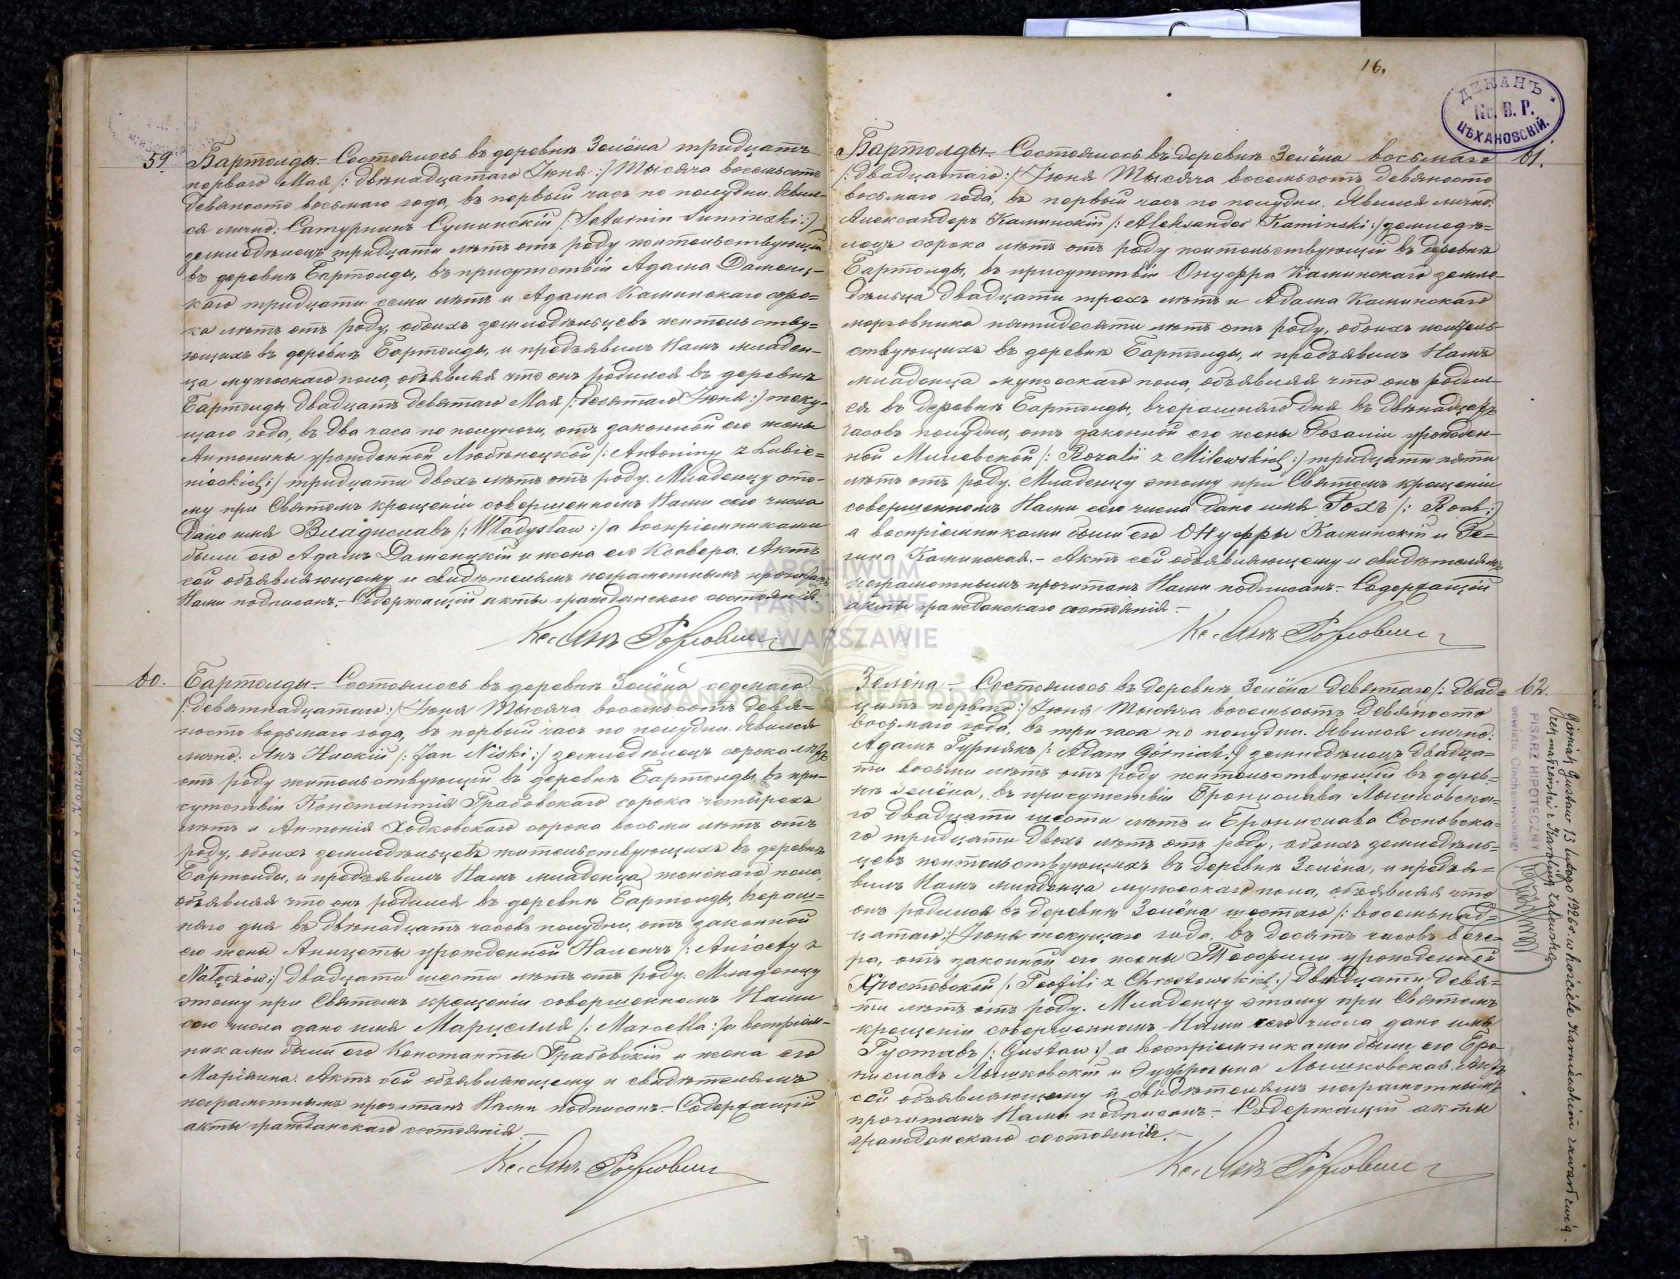 59. Бартолды.– Состоялось въ деревнѣ Зелёна тридцать
перваго Мая /: двѣнадцатаго Іюня :/ Тысяча восемьсотъ
девяносто восьмаго года, въ первый часъ по полудни. Явил-
ся лично: Сатурнинъ Суминскій /: Saturnin Suminski :/
земледѣлецъ тридцати лѣтъ отъ роду жительствующій
въ деревнѣ Бартолды, въ присутствіи Адама
каго тридцати семи лѣтъ и Адама Каминскаго соро-
ка лѣтъ отъ роду, обоихъ земледѣльцевъ жительству-
ющихъ въ деревнѣ Бартолды, и предъявилъ Намъ младен-
ца мужескаго пола, объявляя что онъ родился въ деревнѣ
Бартолды двадцать девятаго Мая /: десятаго Іюня :/ теку-
щаго года, въ два часа по полуночи, отъ законной его жены
Антонины урожденной /: Antoniny z Lubie-
nieckich :/ тридцати двохъ лѣтъ отъ роду. Младенцу это-
му при Святомъ крещеніи совершенномъ Нами сего числа
дано имя Владиславъ /: Władysław :/ а воспріемниками
были его Адамъ и жена его Ксавера. Актъ
сей объявляющему и свидѣтелямъ неграмотнымъ прочитанъ
Нами подписанъ.– Содержащій акты гражданскаго состоянія
Кс. Янъ
60. Бартолды.– Состоялось въ деревнѣ Зелёна седьмаго
/: девятнадцатаго :/ Іюня Тысяча восемьсотъ девя-
носто восьмаго года, въ первый часъ по полудни. Явился
лично: Янъ Нискій /: Jan Niski :/ земледѣлецъ сорока лѣтъ
отъ роду жительствующій въ деревнѣ Бартолды, въ при-
сутствіи Константія Грабовскаго сорока четырехъ
лѣтъ и Антонія Ходковскаго сорока восьми лѣтъ отъ
роду, обоихъ земледѣльцевъ жительствующихъ въ деревнѣ
Бартолды, и предъявилъ Намъ младенца женскаго пола,
объявляя что онъ родился въ деревнѣ Бартолды, вчераш-
няго дня въ двѣнадцать часовъ полудни, отъ законной
его жены Аницеты урожденной /: Anicety z
Nałęczów :/ двадцати шести лѣтъ отъ роду. Младенцу
этому при Святомъ крещеніи совершенномъ Нами
сего числа дано имя Марцелля /: Marcella :/ а воспріем-
никами были его Константы Грабовскій и жена его
Маріянна. Актъ сей объявляющему и свидѣтелямъ
неграмотнымъ прочитанъ Нами подписанъ.– Содержащій
акты гражданскаго состоянія.–
Кс. Янъ
16.
ДЕКАНЪ
Кс. В. Р.
ЦѢХАНОВСКІЙ.
Бартолды.– Состоялось въ деревнѣ Зелёна восьмаго 61.
/: двадцатаго :/ Іюня Тысяча восемьсотъ девяносто
восьмаго года, въ первый часъ по полудни. Явился лично:
Александеръ Каминскій /: Aleksander Kamiński :/ земледѣ-
лецъ сорока лѣтъ отъ роду жительствующій въ деревнѣ
Бартолды, въ присутствіи Онуфра Каминскаго земле-
дѣльца двадцати трехъ лѣтъ и Адама Каминскаго
морговника пятидесяти лѣтъ отъ роду, обоихъ житель-
ствующихъ въ деревнѣ Бартолды, и предъявилъ Намъ
младенца мужескаго пола, объявляя что онъ родил-
ся въ деревнѣ Бартолды, вчерашняго дня въ двѣнадцать
часовъ полудни, отъ законной его жены Розаліи урожден-
ной Милевской /: Rozalii z Milewskich :/ тридцати пяти
лѣтъ отъ роду. Младенцу этому при Святомъ крещеніи
совершенномъ Нами сего числа дано имя Рохъ /: Roch :/
а воспріемниками были его Онуфры Каминскій и Ре-
гина Каминская.– Актъ сей объявляющему и свидѣтелямъ
неграмотнымъ прочитанъ Нами подписанъ.– Содержащій
акты гражданскаго состоянія.–
Кс. Янъ
Зелёна.– Состоялось въ деревнѣ Зелёна девятаго /: двад- 62.
цать перваго :/ Іюня Тысяча восемьсотъ девяносто
восьмаго года, въ три часа по полудни. Явился лично:
Адамъ Гурнякъ /: Adam Górniak :/ земледѣлецъ двадца-
ти восьми лѣтъ отъ роду жительствующій въ дерев-
нѣ Зелёна, въ присутствіи Бронислава Лышковска-
го двадцати шести лѣтъ и Бронислава Сосновска-
го тридцати двохъ лѣтъ отъ роду, обоихъ земледѣль-
цевъ жительствующихъ въ деревнѣ Зелёна, и предъя-
вилъ Намъ младенца мужескаго пола, объявляя что
онъ родился въ деревнѣ Зелёна шестаго /: восемьнад-
цатаго :/ Іюня текущаго года, въ десять часовъ вече-
ра, отъ законной его жены Теофили урожденной
Хростовской /: Teofili z Chrostowskich :/ двадцати девя-
ти лѣтъ отъ роду. Младенцу этому при Святомъ
крещеніи совершенномъ Нами сего числа дано имя
Густавъ /: Gustaw :/ а воспріемниками были его Бро-
ниславъ Лышковскій и Лышковская. Актъ
сей объявляющему и свидѣтелямъ неграмотнымъ
прочитанъ Нами подписанъ.– Содержащій акты
гражданскаго состоянія.–
Кс. Янъ
Górniak Gustaw 13 lutego 1926 r. w kościele Karniewskim zawarł związ.
małżeński z Karoliną Zalewską
PISARZ HIPOTECZNY
powiatu Ciechanowskiego
ARCHIWUM
PAŃSTWOWE
W WARSZAWIE